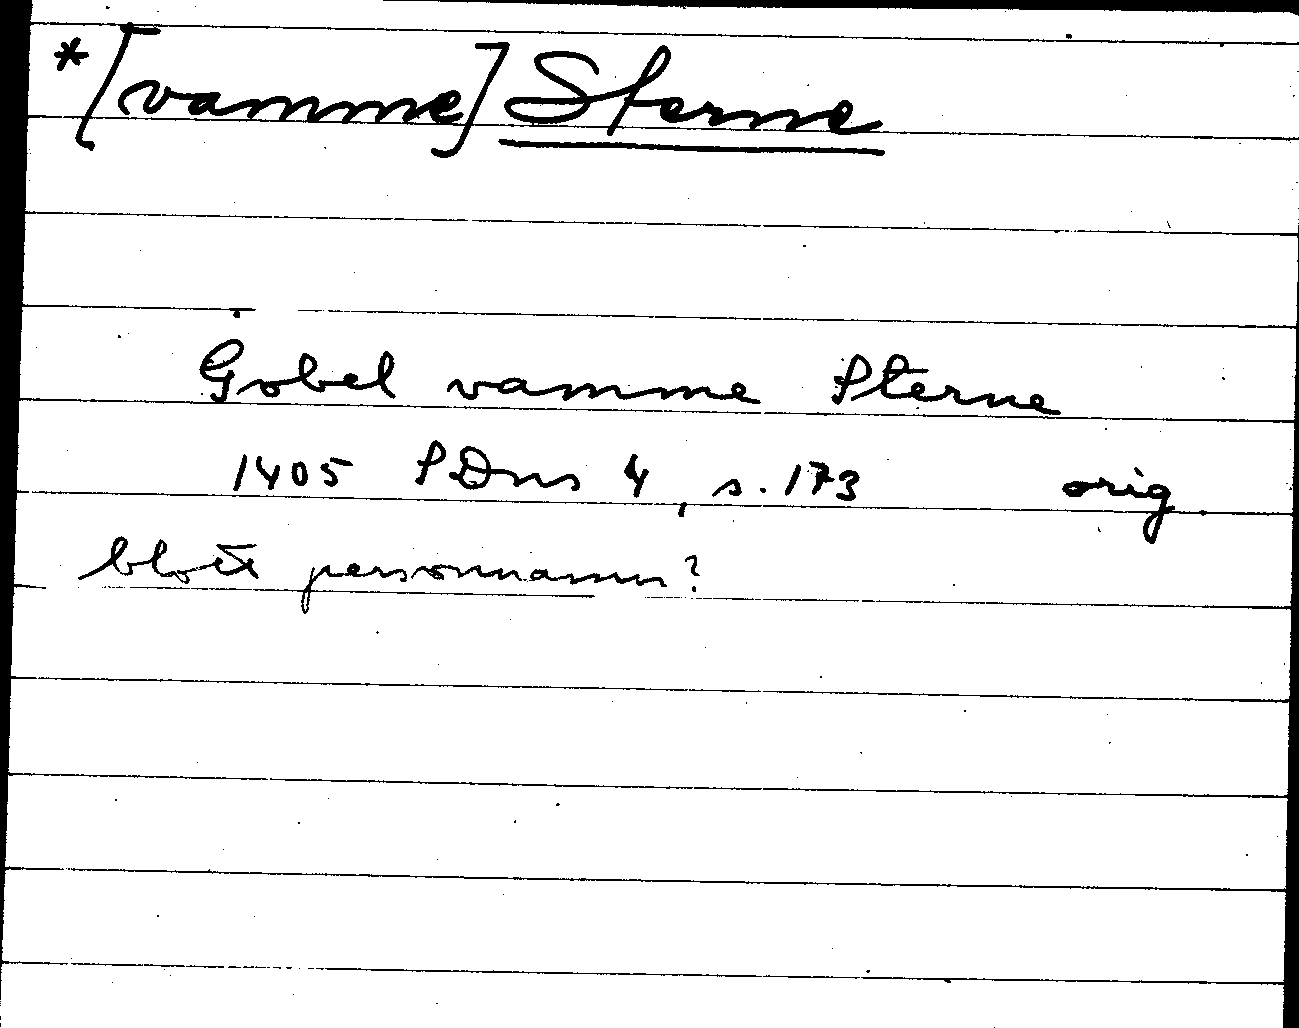 *[vamme] Sterne
Gobel vamme Sterne
1405 SDns 4, s. 173 orig.
blott personnamn?